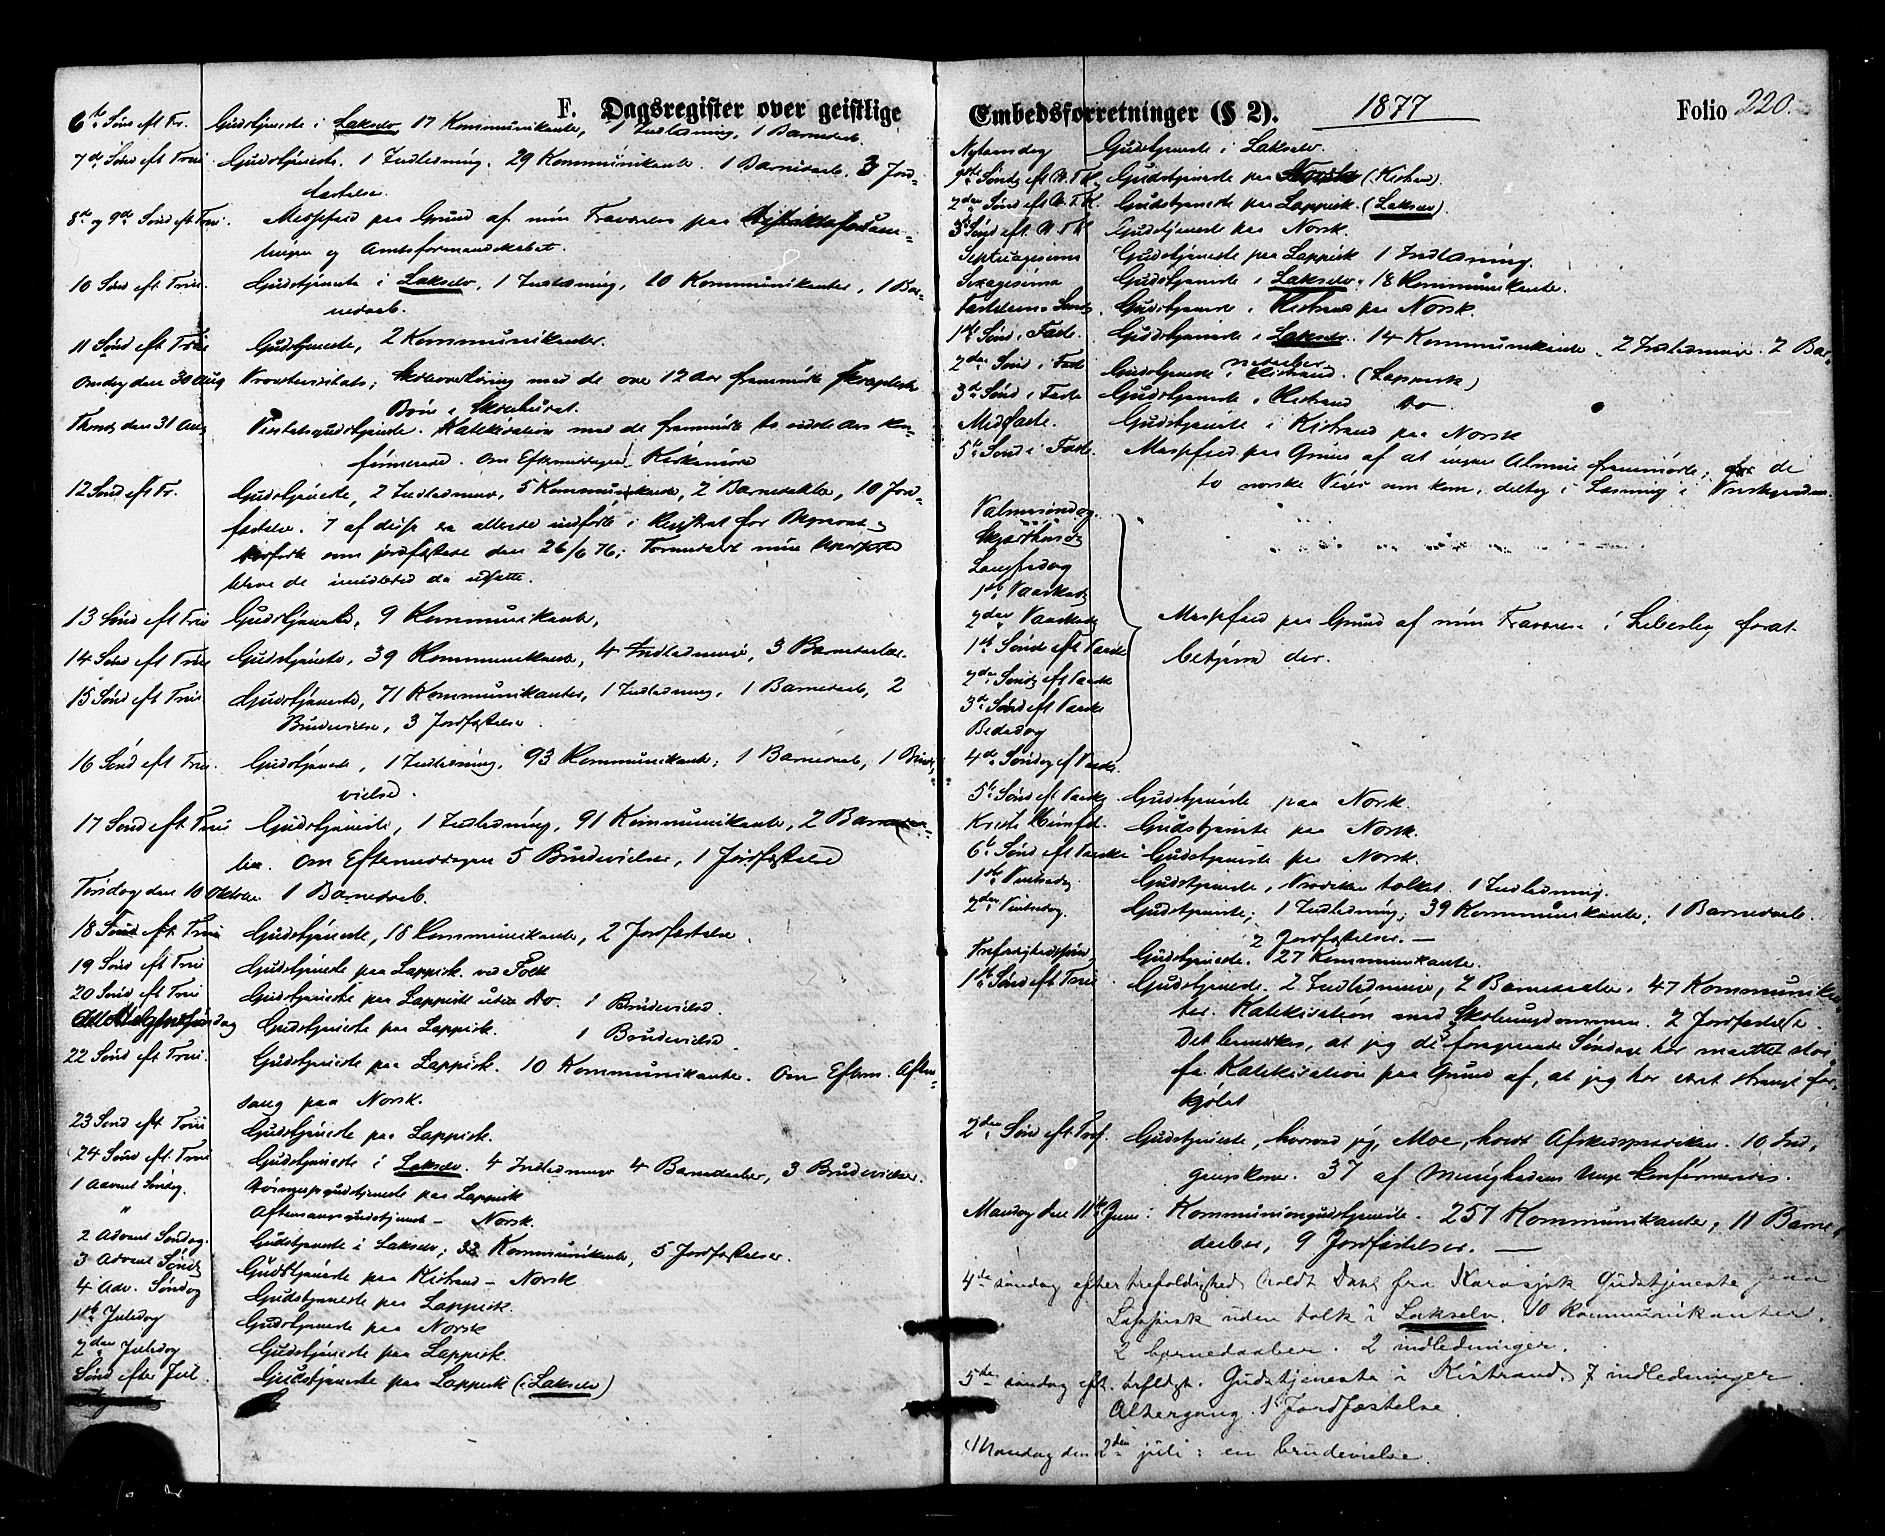 F. Dagsregister over geistlige
6te Sønd eft Tr. Gudstjeneste i Lakselv 17 Kommunikanter, 1 Indledning, 1 Barnedaab.
7de Sønd eft Trin Gudstjeneste. 1 Indledning. 29 Kommunikanter. 1 Barnedaab. 3 Jord-
fæstelse.
8de og 9de Sønd eft Trin. Messefald paa Grund af min Fraværelse paa
og Amtsformandskabet.
10 Sønd eft Trin. Gudstjeneste i Lakselv, 1 Indledning, 10 Kommunikanter, 1 Bar-
nedaab.
11 Sønd eft Trin Gudstjeneste, 2 Kommunikanter.
Onsdag den 30 Aug med de over 12 Aar fremmødte
Børn i Skolehuset.
Thorsd den 31 Aug Katekisation med de fremmødte to sidste Aars Kon-
firmerede. Om Eftermiddagen
12 Sønd eft Tr. Gudstjeneste, 2 Indledninger, 5 Kommunikanter, 2 Barnedaabe, 10 Jord-
fæstelser. 7 af disse er allerede indførte i Registret for Begravede
som jordfæstede den 26/6 76;
bleve de imidlertid da udsatte.
13 Sønd eft Trin Gudstjeneste, 9 Kommunikanter,
14 Sønd eft Trin Gudstjeneste, 39 Kommunikanter, 4 Indledninger, 3 Barnedaabe.
15 Sønd eft Trin Gudstjeneste, 71 Kommunikanter, 1 Indledning, 1 Barnedaab, 2
Brudevielser, 3 Jordfæstelser.
16 Sønd eft Trin. Gudstjeneste, 1 Indledning, 93 Kommunikanter, 1 Barnedaab, 1 Brude-
vielse.
17 Sønd eft Trin Gudstjeneste, 1 Indledning, 91 Kommunikanter, 2 Barnedaa-
ber. Om Eftermiddagen 5 Brudevielser, 1 Jordfæstelse
Tirsdag den 10 Oktober 1 Barnedaab.
18 Sønd eft. Trin Gudstjeneste, 18 Kommunikanter, 2 Jordfæstelser.
19 Sønd eft Trin Gudstjeneste paa Lappisk ved Tolk
20 Sønd eft Trin Gudstjeneste paa Lappisk uden do. 1 Brudevielse
Allehelgensøndag Gudstjeneste paa Lappisk. 1 Brudevielse.
22 Sønd eft Trin. Gudstjeneste paa Lappisk. 10 Kommunikanter. Om Efterm. Aften-
sang paa Norsk.
23 Sønd eft Trin Gudstjeneste paa Lappisk.
24 Sønd eft Trin Gudstjeneste i Lakselv. 4 Indledninger 4 Barnedaaber, 3 Brudevielser.
1 Advent Søndag. paa Lappisk
" Aftensangsgudstjeneste - Norsk.
2 Advent Søndag. Gudstjeneste i Lakselv, 32 Kommunikanter, 5 Jordfæstelser.
3 Advent Søndg Gudstjeneste paa Kistrand - Norsk
4 Adv. Søndag Gudstjeneste paa Lappisk.
1ste Juledag Gudstjeneste paa Norsk
2den Juledag Gudstjeneste paa Lappisk.
Sønd efter Jul. Gudstjeneste paa Lappisk (i Lakselv)
Embedsforretninger (§ 2). 1877 Folio 220.
Nytaarsdag Gudstjeneste i Lakselv.
1ste Søndg eft H.T.K. Gudstjeneste paa Norsk (Kistrand).
2den Sønd eft H.T.K. Gudstjeneste paa Lappisk. (Lakselv).
3 Sønd eft. H.T.K Gudstjeneste paa Norsk.
Septuagesima Gudstjeneste paa Lappisk 1 Indledning.
Sexagesima Gudstjeneste i Lakselv. 18 Kommunikanter.
Fastelavns Søndg. Gudstjeneste i Kistrand paa Norsk.
1ste Sønd i Faste Gudstjeneste i Lakselv. 14 Kommunikanter. 2 Indledninger. 2 Bar-
nedaaber
2den Sønd i Fast Gudstjeneste i Kistrand. (Lappisk)
3de Sønd i Faste Gudstjeneste i Kistrand do
Midfaste. Gudstjeneste i Kistrand paa Norsk
5te Sønd i Faste. Messefald paa Grund af at ingen Almue fremmødte; de
to norske Piger som kom, deltog i Læsning i Præstegaarden.
Palmesøndag.
Skjærthorsdg
Langfredag
1ste Paaskedg
2den Paaskedg Messefald paa Grund af min Fraværelse i Lebesby forat
1ste Sønd eft Paaske betjene der.
2den Søndg eft Paaske
3de Sønd eft Paaske
Bededag
4de Søndag ef Paaske.
5te Sønd eft Paaske Gudstjeneste paa Norsk.
Kristi Himfd. Gudstjeneste paa Norsk.
6te Sønd eft Paaske Gudstjeneste paa Norsk.
1ste Pintsedg Gudstjeneste, Prædiken tolket. 1 Indledning.
2den Pintsedag. Gudstjeneste, 1 Indledning, 39 Kommunikanter, 1 Barnedaab.
2 Jordfæstelser. —
Trefoldighedssønd Gudstjeneste. 27 Kommunikanter.
1ste Sønd eft Trin Gudstjeneste. 2 Indledninger, 2 Barnedaaber. 47 Kommunikan-
ter. Katekisation med Skoleungdommen. 2 Jordfæstelser.
Det bemærkes, at jeg de 3 foregaaende Søndage har maattet sløi-
fe Katekisation paa Grund af, at jeg har været strengt for-
kjølet
2den Sønd eft Tref. Gudstjeneste, hvorved jeg, Moe, holdt Afskedspræken. 10 Ind-
gangskoner. 37 af Menighedens Unge konfirmeredes.
Mandag den 11te Juni: Kommuniongudstjeneste. 257 Kommunikanter, 11 Barne-
daaber, 9 Jordfæstelser. —
4de søndag efter trefoldighed holdt fra Karasjok Gudstjeneste paa
Lappisk uden tolk i Lakselv. 10 kommunikanter.
2 barnedaaber. 2 indledninger.
5te søndag eft. trefoldgt. Gudstjeneste i Kistrand. 7 indledninger.
Altergang. 1 Jordfæstelse.
Mandag den 2den juli: en brudevielse.